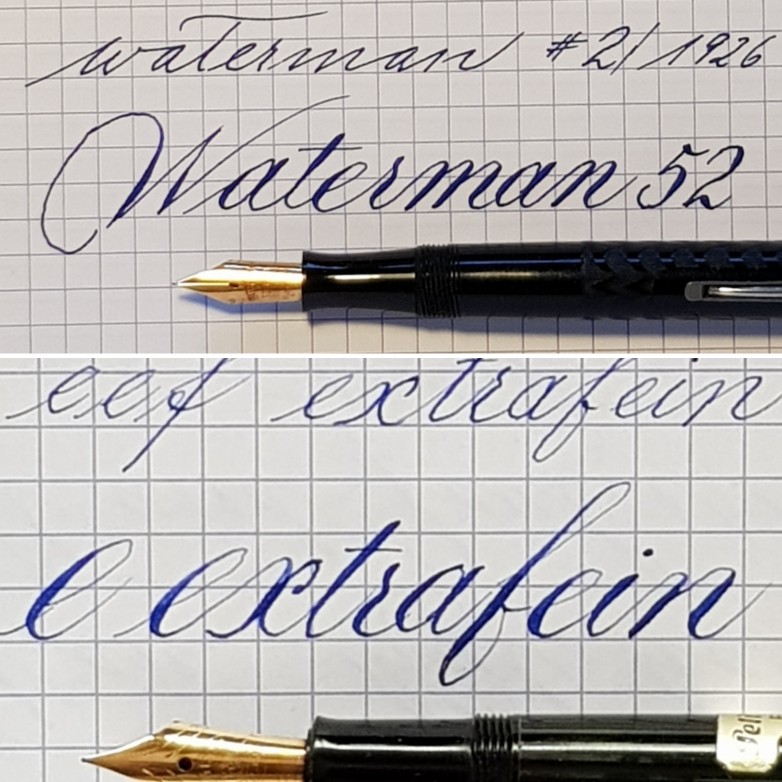 waterman #2/1926
Waterman 52
eef extrafein
e extrafein